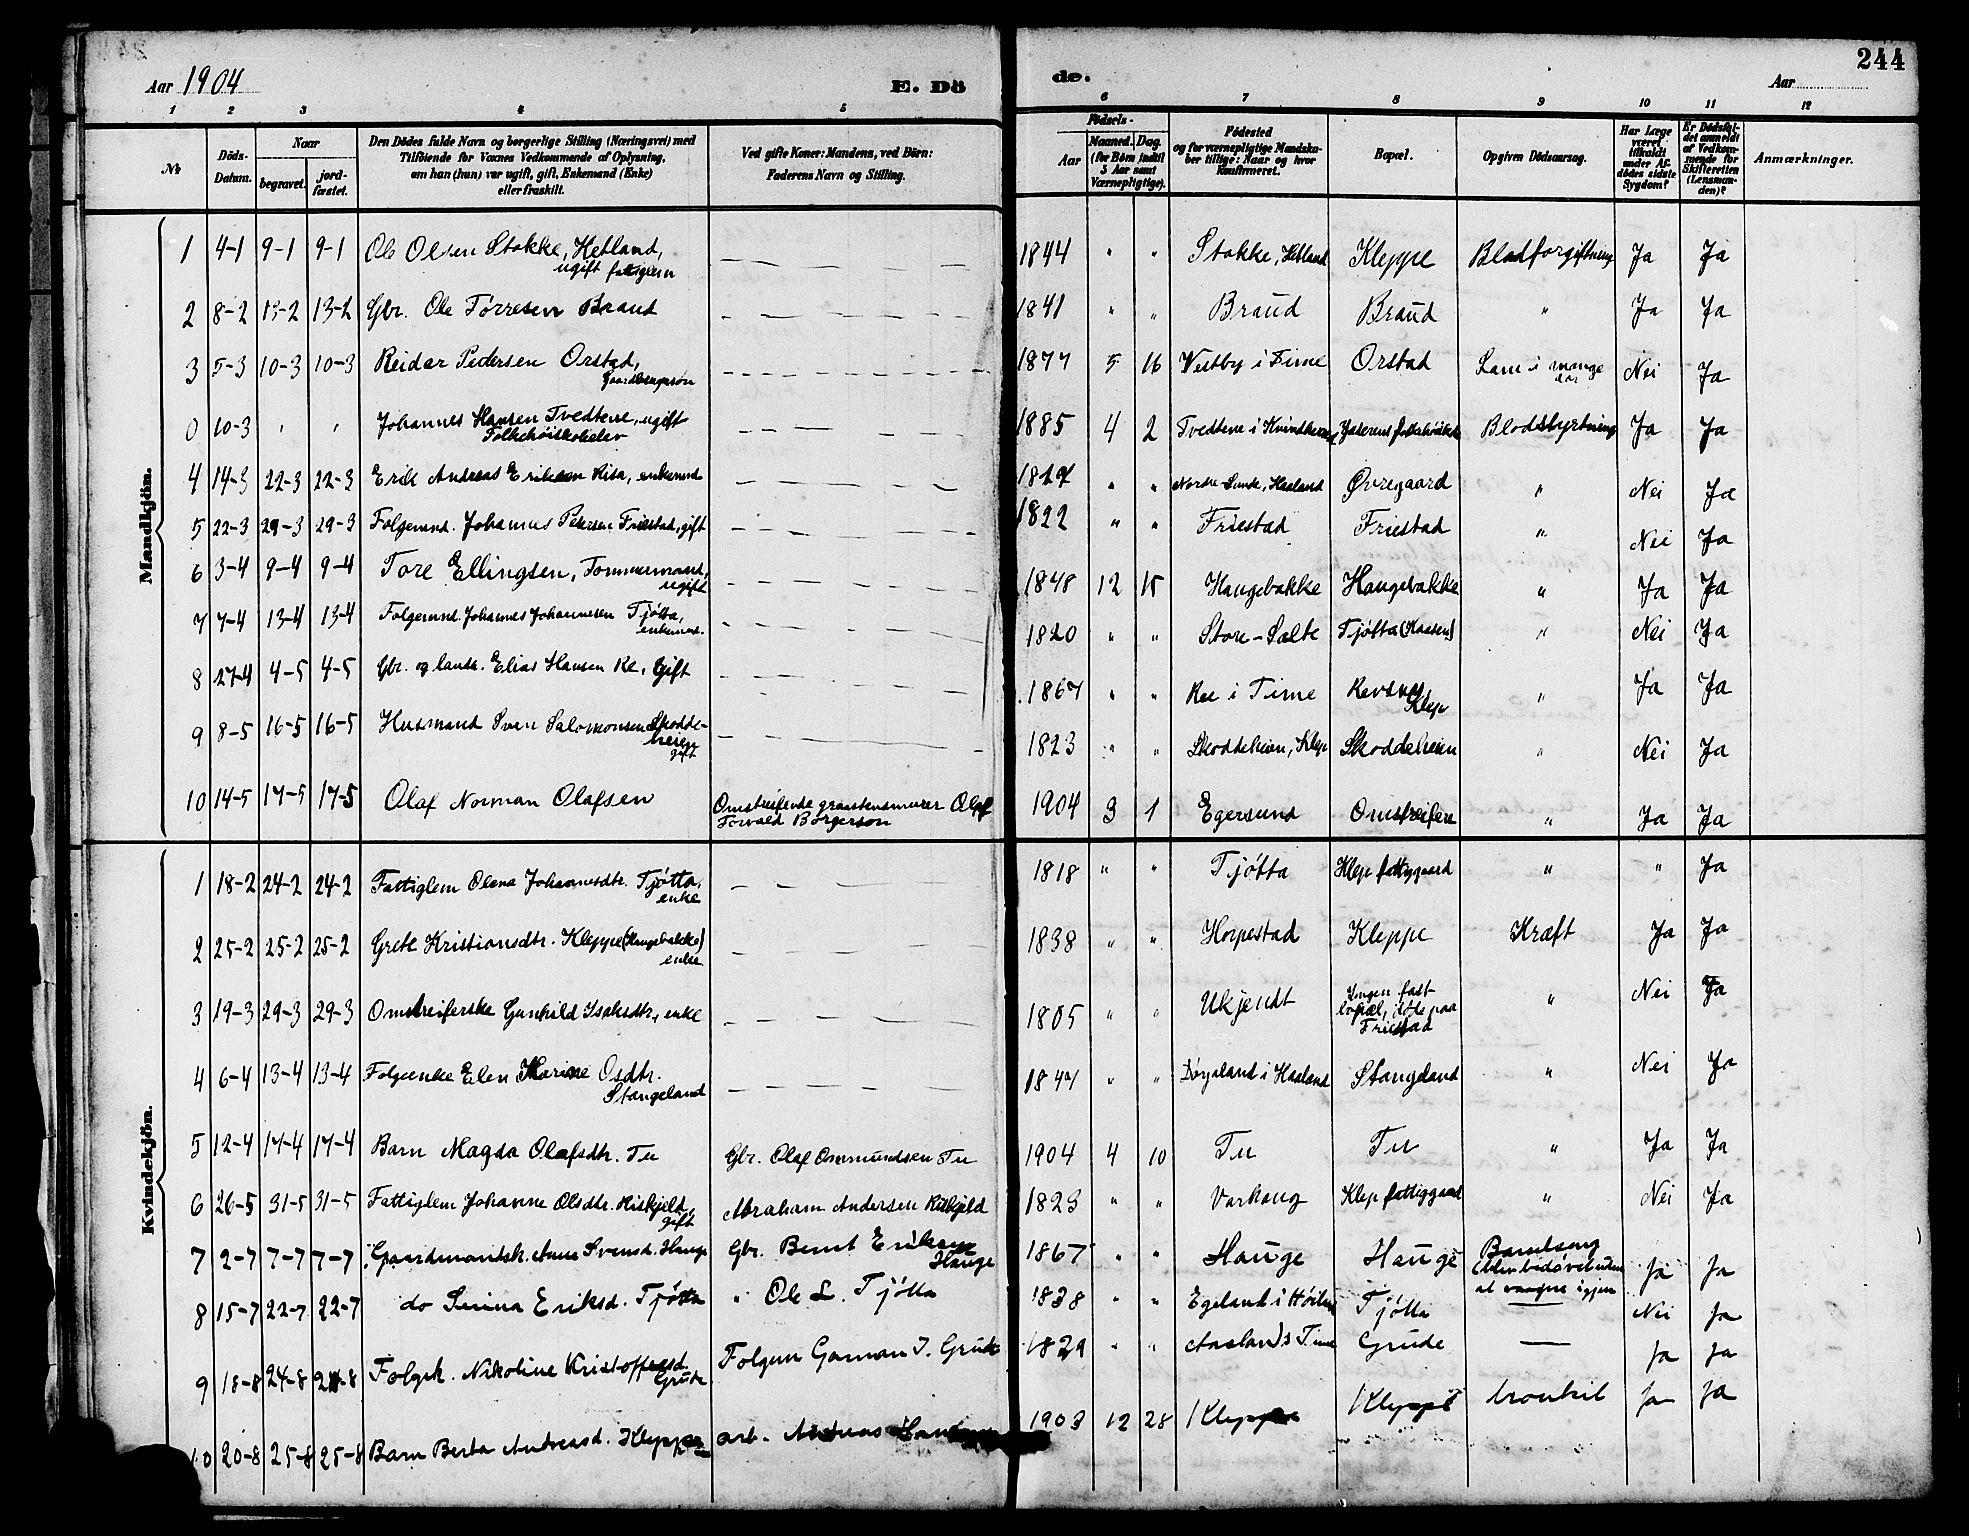 244
Aar 1904 E. Dö de. Aar
1 2 3 4 5 6 7 8 9 10 11 12
№ Döds-Datum. Naar begravet. jord-fæstet. Den Dödes fulde Navn og borgerlige Stilling (Næringsvei) med Tilföiende for Voxnes Vedkommende af Oplysning, om han (hun) var ugift, gift, Enkemand (Enke) eller fraskilt. Ved gifte Koner: Mandens, ved Börn: Faderens Navn og Stilling. Födsels- Aar Maaned. Dag. (for Börn indtil 5 Aar samt Værnepligtige). Födested og for værnepligtige Mandskaber tillige: Naar og hvor konfirmeret. Bopæl. Opgiven Dödsaarsag. Har Læge været tilkaldt under Afdödes sidste Sygdom? Er Dödsfaldet anmeldt af Vedkommende for Skifteretten (Lensmanden)? Anmærkninger.
Mandkjön.
1 4-1 9-1 9-1 Ole Olsen Stokke, Hetland, ugift fattiglem 1844 " " Stokke, Hetland Kleppe Blodforgiftning Ja Ja
2 8-2 13-2 13-2 Gbr. Ole Tørresen Braud 1841 " " Braud Braud " Ja Ja
3 5-3 10-3 10-3 Reidar Pedersen Orstad, Gaardbrugersøn 1877 5 16 Vestby i Time Orstad Lam i mange aar Nei Ja
0 10-3 " " Johannes Hansen Tvedtene, ugift Folkehøiskoleelev 1885 4 2 Tvedtene i Jæderens folkehøiskole Blodstyrtning Ja Ja
4 14-3 22-3 22-3 Erik Andreas Eriksen Risa, enkemand " " Haaland Øvregaard " Nei Ja
5 22-3 29-3 29-3 Folgemnd. Johannes Petersen Friestad, gift 1822 " " Friestad Friestad " Nei Ja
6 3-4 9-4 9-4 Tore Ellingsen, Tømmermand, ugift 1848 12 15 Haugebakke Haugebakke " Ja Ja
7 7-4 13-4 13-4 Folgemnd. Johannes Johannesen Tjøtta, enkemnd. 1820 " " Store-Salte Tjøtta (Kaasen) " Nei Ja
8 27-4 4-5 4-5 Gbr. og landh. Elias Hansen Re, Gift 1867 " " Ree i Time Revsnes Klep " Ja Ja
9 8-5 16-5 16-5 Husmand Sven Salomonsen Skodde-heien gift 1823 " " Skoddeheien, Klep Skoddeheien " Nei Ja
10 14-5 17-5 17-5 Olaf Norman Olafsen Omstreifende graastensmurer Olaf Torvald Børgerson 1904 3 1 Egersund Omstreifere " Ja Ja
Kvindekjön.
1 18-2 24-2 24-2 Fattiglem Olena Johannesdtr. Tjøtta, enke 1818 " " Tjøtta Klep fattiggaard " " Ja
2 25-2 25-2 25-2 Grete Kristiansdtr. Kleppe (Haugebakke) enke 1838 " " Horpestad Kleppe Kræft Ja Ja
3 19-3 29-3 29-3 Omstreiferske Gunhild Isaksdtr., enke 1805 " " Ukjendt Ingen fast bopæl, døde paa Friestad " Nei Ja
4 6-4 13-4 13-4 Folgeenke Elen Karine Osdtr. Stangeland 1847 " " Døysland i Haaland Stangeland " Nei Ja
5 12-4 17-4 17-4 Barn Magda Olafsdtr. Tu Gbr. Olaf Ommundsen Tu 1904 4 10 Tu Tu " Ja Ja
6 26-5 31-5 31-5 Fattiglem Johanne Olsdtr. Riskjeld, gift Abraham Andersen Riskjeld 1823 " " Varhaug Klep fattiggaard " Nei Ja
7 2-7 7-7 7-7 Gaardmandsk. Anna Svensd. Hauge Gbr. Bernt Eriksen Hauge 1867 " " Hauge Hauge Barselseng (blev bedøvet uden at vaagne igjen Ja Ja
8 15-7 22-7 22-7 do Serina Eriksd. Tjøtta " Ole L. Tjøtta 1838 " " Egeland i Høiland Tjøtta — Nei Ja
9 18-8 24-8 24-8 Folgek. Nikoline Kristoffersd. Grude Folgem Gaman T. Grude 1829 " " Aasland i Time Grude — Ja Ja
10 20-8 25-8 25-8 Barn Berta Andreasd. Kleppe arb. Andreas 1903 12 28 Kleppe Kleppe bronkit Ja Ja